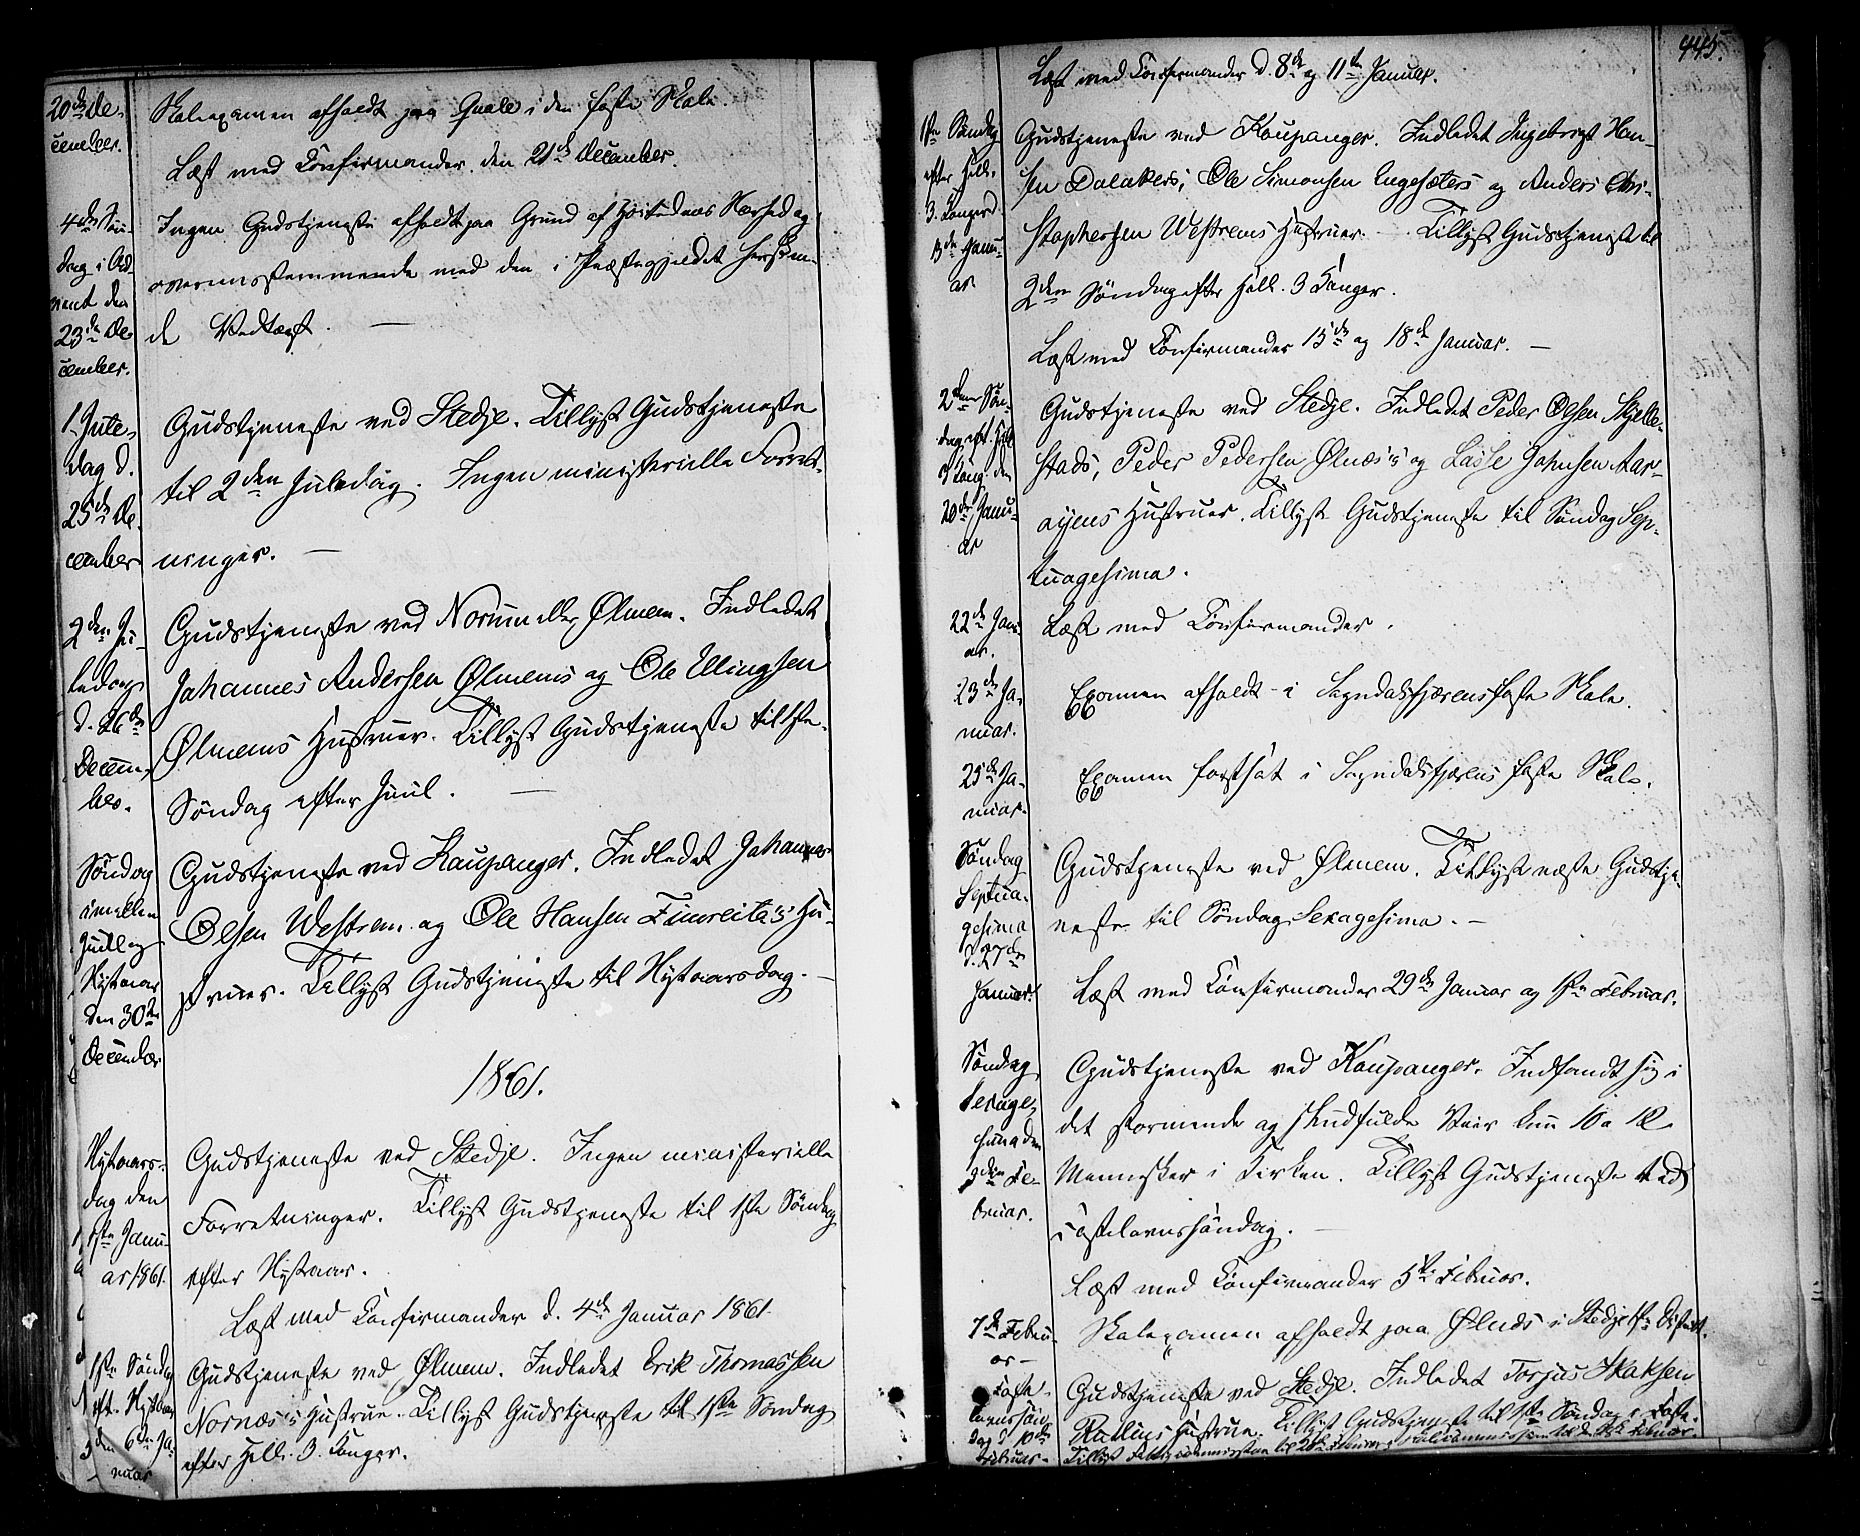 20de De-
cember.
Skoleexamen afholdt paa Quale i den faste Skole.
Læst med Confirmander den 21de December.
4de Søn-
dag i Ad-
vent den
23de De-
cember.
Ingen Gudstjeneste afholdt paa Grund af Høitidens Nærhed og
overensstemmende med den i Præstegjeldet herſken-
de Vedtægt. —
1. Jule-
dag d.
25de De-
cember
Gudstjeneste ved Stedje. Tillyst Gudstjeneste
til 2den Juledag. Ingen ministerielle Forret-
ninger. —
2den Ju-
ledag
d. 26de
Decem-
ber.
Gudstjeneste ved Norum eller Ølmem. Indledet
Johannes Andersen Ølmems og Ole Ellingsen
Ølmems Hustruer. Tillyst Gudstjeneste til 1ste
Søndag efter Juul. —
Søndag
imellem
Juul og
Nytaar
den 30te
December
Gudstjeneste ved Kaupanger. Indledet Johannes
Olsen Westrem og Ole Hansen Fimreita's Hu-
struer. Tillyst Gudstjeneste til Nytaarsdag. —
1861.
Nytaars-
dag den
1ste Janu-
ar 1861.
Gudstjeneste ved Stedje. Ingen ministerielle
Forretninger. Tillyst Gudstjeneste til 1ste Søndag
efter Nytaar.
Læst med Confirmander d. 4de Januar 1861.
1ste Søndag
eft. Nytaar
den 6te Ja-
nuar
Gudstjeneste ved Ølmem. Indledet Erik Thomassen
Nornæs's Hustrue. Tillyst Gudstjeneste til 1ste Søndag
efter Hell. 3 Konger.
445.
Læst med Confirmander d. 8de og 11te Januar.
1ste Søndag
efter Hell.
3 Konger d.
13de Janu-
ar
Gudstjeneste ved Kaupanger. Indledet Ingebrigt Han-
sen Dalakers, Ole Simonsen Engesæters og Anders Chri-
stophersen Westrems Hustruer. — Tillyst Gudstjeneste til
2den Søndag efter Hell. 3 Konger.
Læst med Confirmander 15de og 18de Januar. —
2den Søn-
dag eft. Hell.
3 Kong. den
20de Janu-
ar
Gudstjeneste ved Stedje. Indledet Peder Olsen Skjelle-
stads, Peder Pedersen Ølnæs's og Lasse Johnsen Aar-
øyens Hustruer. Tillyst Gudstjeneste til Søndag Sep-
tuagesima.
22de Janu-
ar.
Læst med Confirmander.
23de Ja-
nuar.
Examen afholdt i Sogndalsfjærens faste Skole.
25de Ja-
nuar.
Examen fortsat i Sogndalsfjærens faste Skole.
Søndag
Septua-
gesima
d. 27de
Januar.
Gudstjeneste ved Ølmem. Tillyst næste Gudstje-
neste til Søndag Sexagesima. —
Læst med Confirmander 29de Januar og 1ste Februar.
Søndag
Sexage-
sima den
3die Fe-
bruar.
Gudstjeneste ved Kaupanger. Indfandt sig i
det stormende og skudfulde Veir kun 10 a 12
Mennesker i Kirken. Tillyst Gudstjeneste ved
Fastelavnssøndag. —
Læst med Confirmander 5te Februar.
7de Febru-
ar —
Skoleexamen afholdt paa Ølnæs i Stedje 1ste District.
Faste-
lavnssøn-
dag d. 10de
Februar.
Gudstjeneste ved Stedje. Indledet Torjus Isaksen
Rutlins Hustrue. Tillyst Gudstjeneste til 1ste Søndag i Faste.